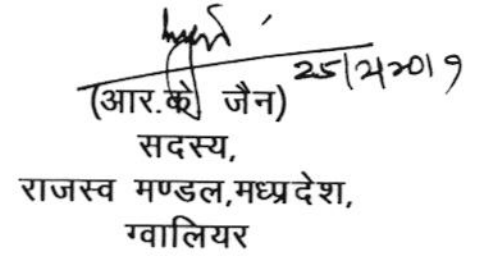 25/2/2019
(आर.के. जैन)
सदस्य,
राजस्व मण्डल,मध्यप्रदेश,
ग्वालियर